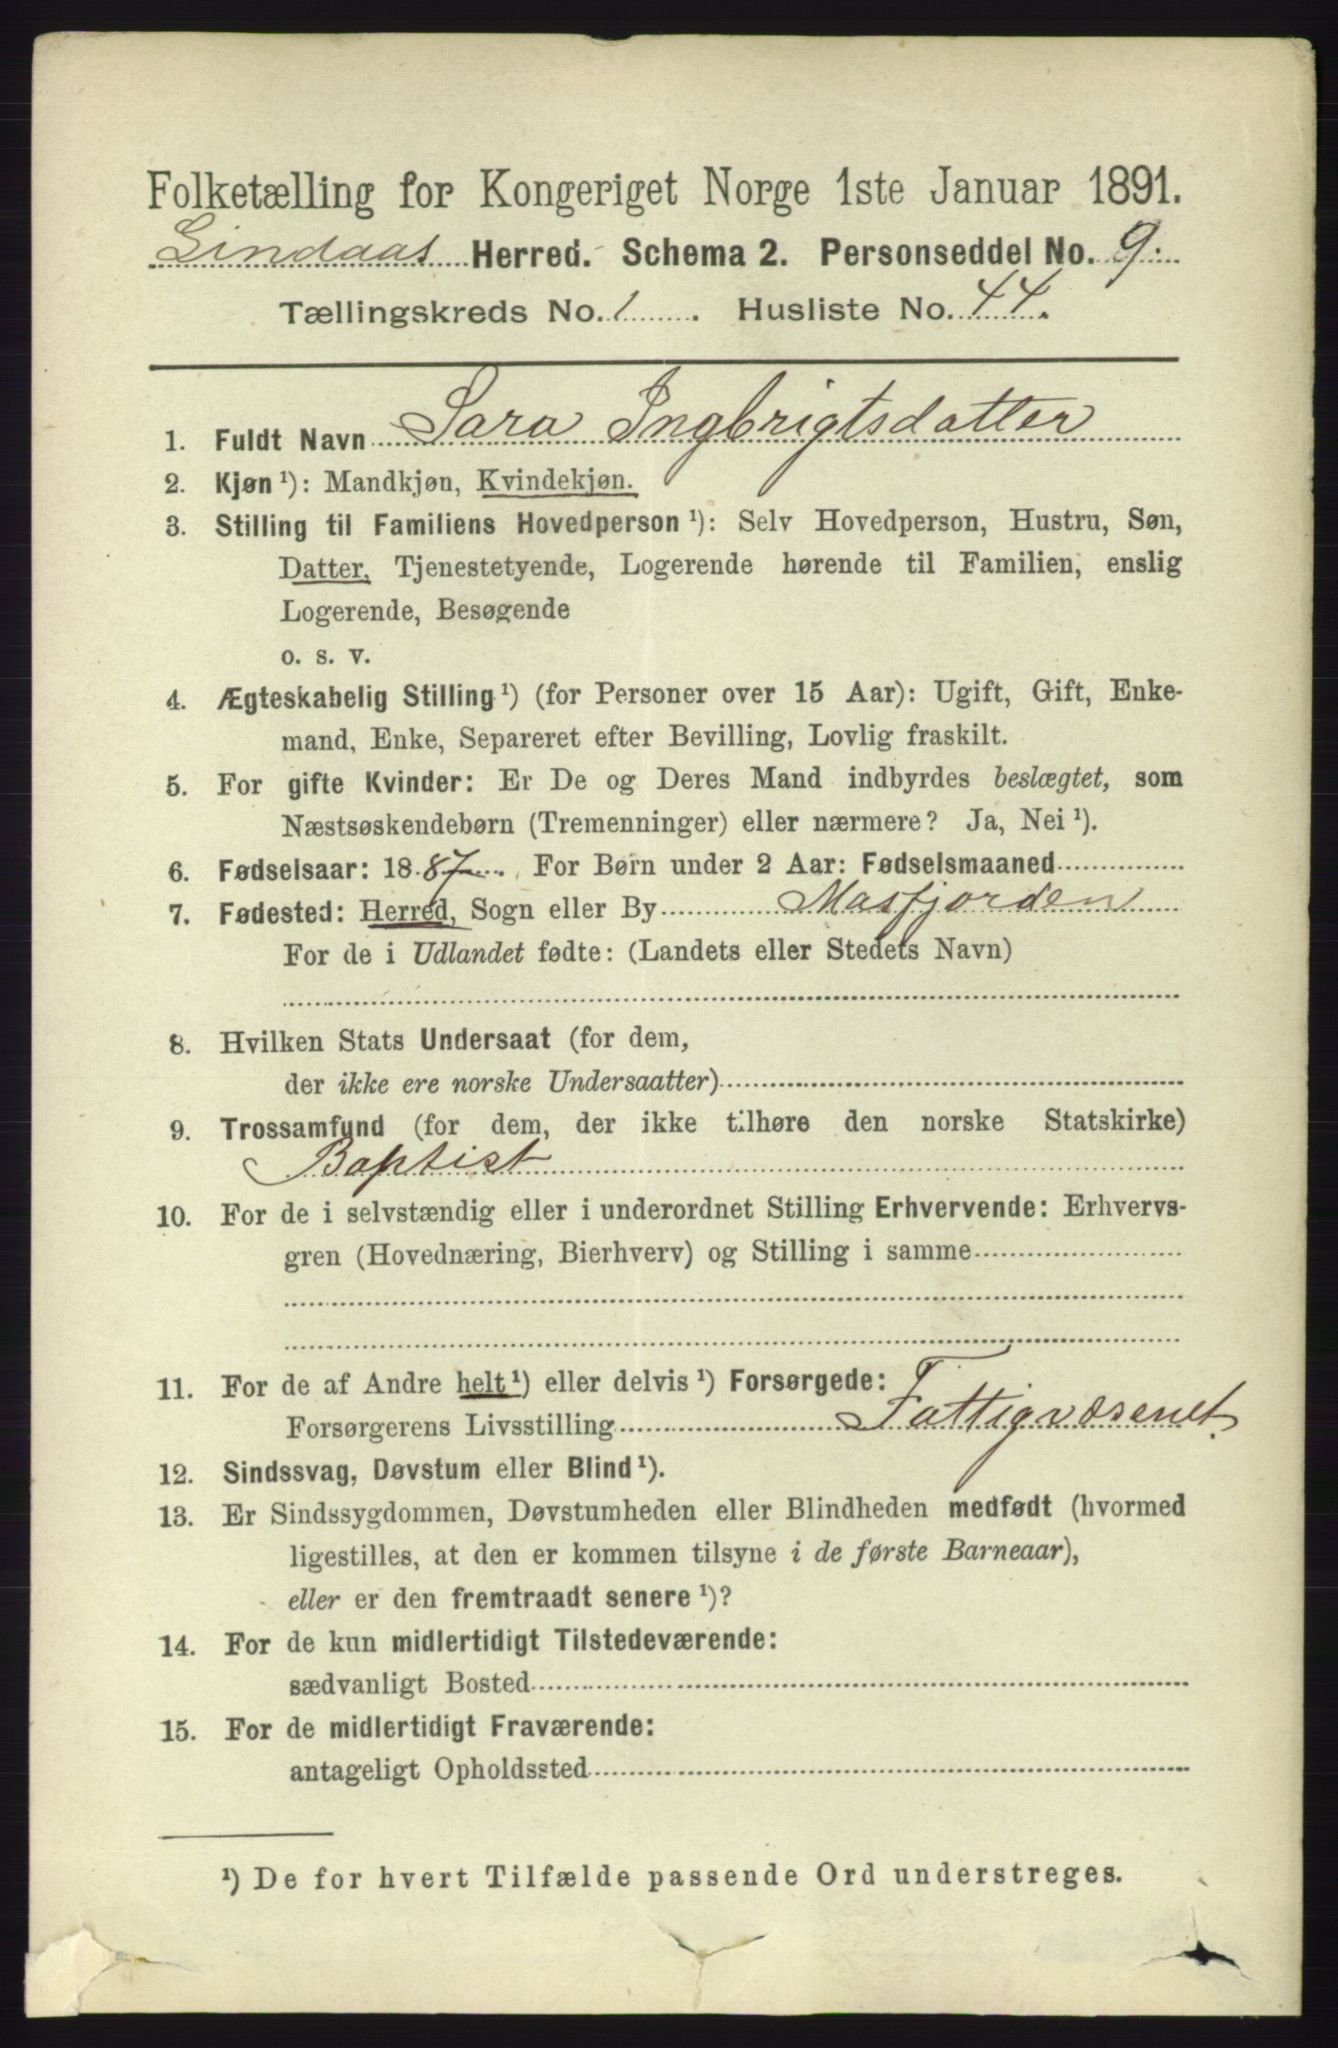 Folketælling for Kongeriget Norge 1ste Januar 1891.
Lindaas Herred. Schema 2. Personseddel No. 9.
Tællingskreds No. 1. Husliste No. 44.
1. Fuldt Navn Sara Ingbrigtsdatter
2. Kjøn ¹): Mandkjøn, Kvindekjøn.
3. Stilling til Familiens Hovedperson ¹): Selv Hovedperson, Hustru, Søn,
Datter, Tjenestetyende, Logerende hørende til Familien, enslig
Logerende, Besøgende
o. s. v.
4. Ægteskabelig Stilling ¹) (for Personer over 15 Aar): Ugift, Gift, Enke-
mand, Enke, Separeret efter Bevilling, Lovlig fraskilt.
5. For gifte Kvinder: Er De og Deres Mand indbyrdes beslægtet, som
Næstsøskendebørn (Tremenninger) eller nærmere? Ja, Nei ¹).
6. Fødselsaar: 1887. For Børn under 2 Aar: Fødselsmaaned
7. Fødested: Herred, Sogn eller By Masfjorden
For de i Udlandet fødte: (Landets eller Stedets Navn)
8. Hvilken Stats Undersaat (for dem,
der ikke ere norske Undersaatter)
9. Trossamfund (for dem, der ikke tilhøre den norske Statskirke)
Baptist
10. For de i selvstændig eller i underordnet Stilling Erhvervende: Erhvervs-
gren (Hovednæring, Bierhverv) og Stilling i samme
11. For de af Andre helt ¹) eller delvis ¹) Forsørgede:
Forsørgerens Livsstilling Fattigvæsenet.
12. Sindssvag, Døvstum eller Blind ¹).
13. Er Sindssygdommen, Døvstumheden eller Blindheden medfødt (hvormed
ligestilles, at den er kommen tilsyne i de første Barneaar),
eller er den fremtraadt senere ¹)?
14. For de kun midlertidigt Tilstedeværende:
sædvanligt Bosted
15. For de midlertidigt Fraværende:
antageligt Opholdssted
¹) De for hvert Tilfælde passende Ord understreges.